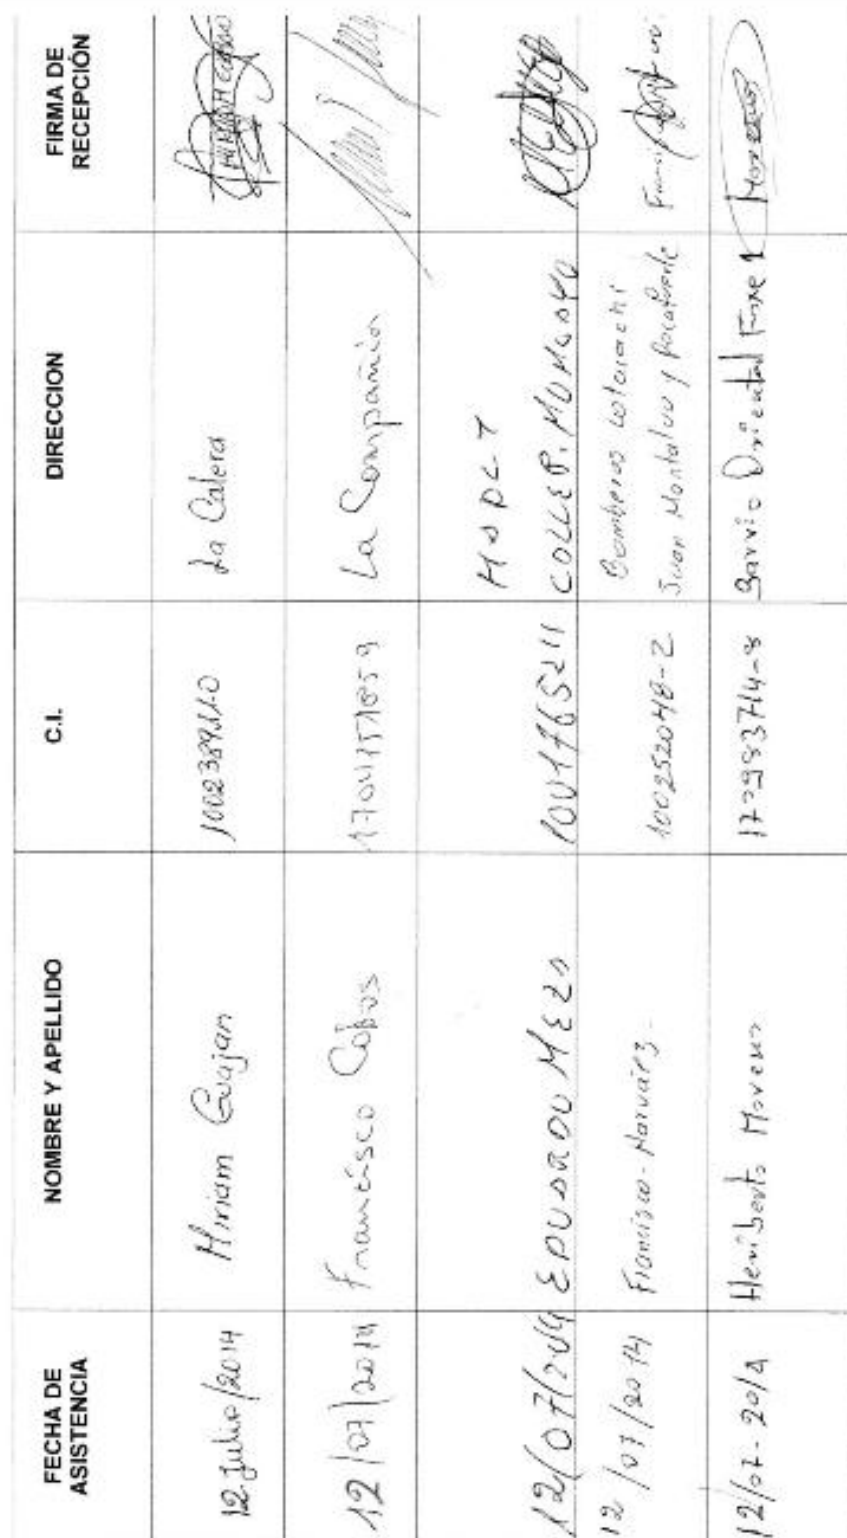 FECHA DE ASISTENCIA NOMBRE Y APELLIDO C.I. DIRECCION FIRMA DE RECEPCIÓN
12 Julio/2014 Miriam Guajan La Calera
12/07/2014 Francisco Cobos La Compañia
12/07/2014 EDUARDO MEZA 1001765211
CALLE P. MONCAYO
12/07/2014 Francisco Narváez 100252048-2 Bomberos Cotacachi
Juan Montalvo y Rocafuerte
12/07-2014 Heriberto Moreno Barrio Oriental Fase 1 Moreno